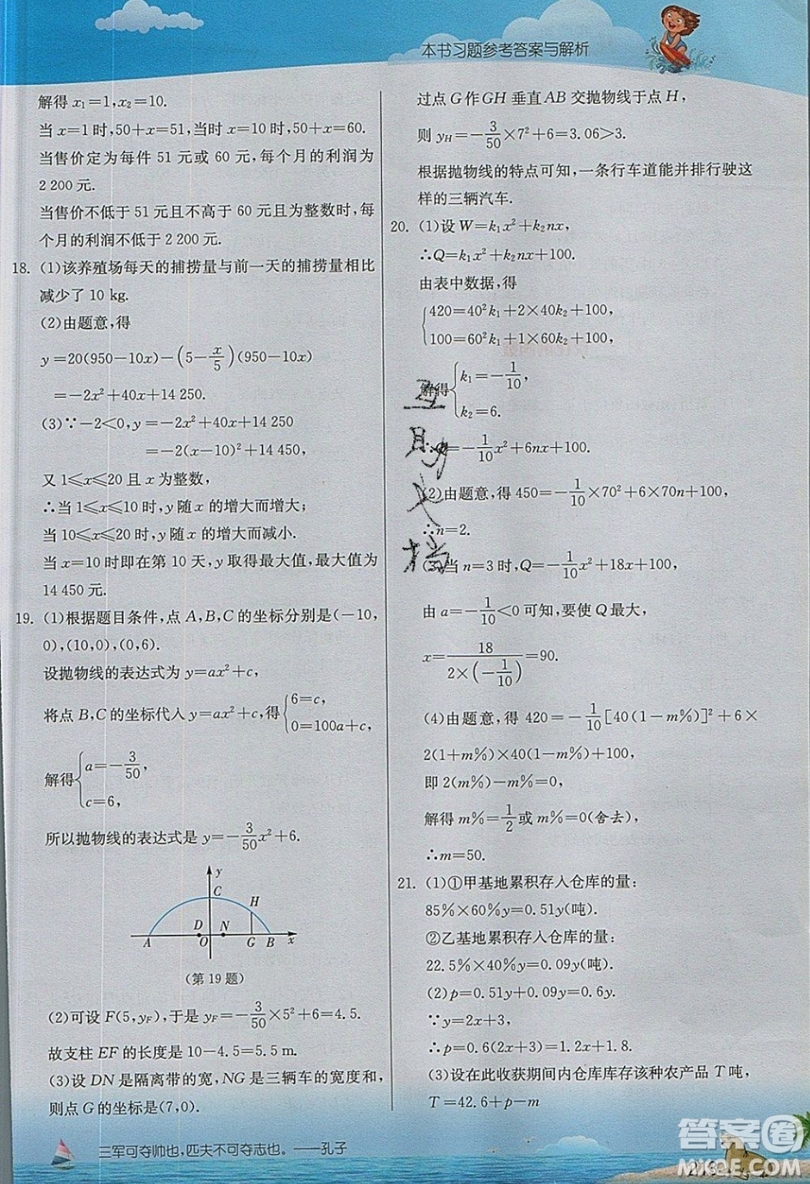 本书习题参考答案与解析
解得 x₁=1,x₂=10.
当 x=1 时,50+x=51,当时 x=10 时,50+x=60.
当售价定为每件 51 元或 60 元,每个月的利润为
2 200 元.
当售价不低于 51 元且不高于 60 元且为整数时,每
个月的利润不低于 2 200 元.
18. (1)该养殖场每天的捕捞量与前一天的捕捞量相比
减少了 10 kg.
(2)由题意,得
y=20(950-10x)-(5-x/5)(950-10x)
=-2x²+40x+14 250.
(3)∵-2<0,y=-2x²+40x+14 250
=-2(x-10)²+14 450,
又 1≤x≤20 且 x 为整数,
∴当 1≤x≤10 时,y 随 x 的增大而增大;
当 10≤x≤20 时,y 随 x 的增大而减小.
当 x=10 时即在第 10 天,y 取得最大值,最大值为
14 450 元.
19. (1)根据题目条件,点 A,B,C 的坐标分别是(-10,
0),(10,0),(0,6).
设抛物线的表达式为 y=ax²+c,
将点 B,C 的坐标代入 y=ax²+c,得{6=c,
0=100a+c,
解得{a=-3/50,
c=6,
所以抛物线的表达式是 y=-3/50x²+6.
y
C
H
D N
A O G B x
(第 19 题)
(2)可设 F(5,y_F),于是 y_F=-3/50×5²+6=4.5.
故支柱 EF 的长度是 10-4.5=5.5 m.
(3)设 DN 是隔离带的宽,NG 是三辆车的宽度和,
则点 G 的坐标是(7,0).
过点 G 作 GH 垂直 AB 交抛物线于点 H,
则 y_H=-3/50×7²+6=3.06>3.
根据抛物线的特点可知,一条行车道能并排行驶这
样的三辆汽车.
20. (1)设 W=k₁x²+k₂nx,
∴Q=k₁x²+k₂nx+100.
由表中数据,得
{420=40²k₁+2×40k₂+100,
100=60²k₁+1×60k₂+100,
解得{k₁=-1/10,
k₂=6.
Q=-1/10x²+6nx+100.
(2)由题意,得 450=-1/10×70²+6×70n+100,
∴n=2.
当 n=3 时,Q=-1/10x²+18x+100,
由 a=-1/10<0 可知,要使 Q 最大,
x=18/(2×(-1/10))=90.
(4)由题意,得 420=-1/10[40(1-m%)]²+6×
2(1+m%)×40(1-m%)+100,
即 2(m%)-m%=0,
解得 m%=1/2或 m%=0(舍去),
∴m=50.
21. (1)①甲基地累积存入仓库的量:
85%×60%y=0.51y(吨).
②乙基地累积存入仓库的量:
22.5%×40%y=0.09y(吨).
(2)p=0.51y+0.09y=0.6y,
∵y=2x+3,
∴p=0.6(2x+3)=1.2x+1.8.
(3)设在此收获期间内仓库库存该种农产品 T 吨,
T=42.6+p-m
三军可夺帅也,匹夫不可夺志也。——孔子
答案圈
MXQE.COM